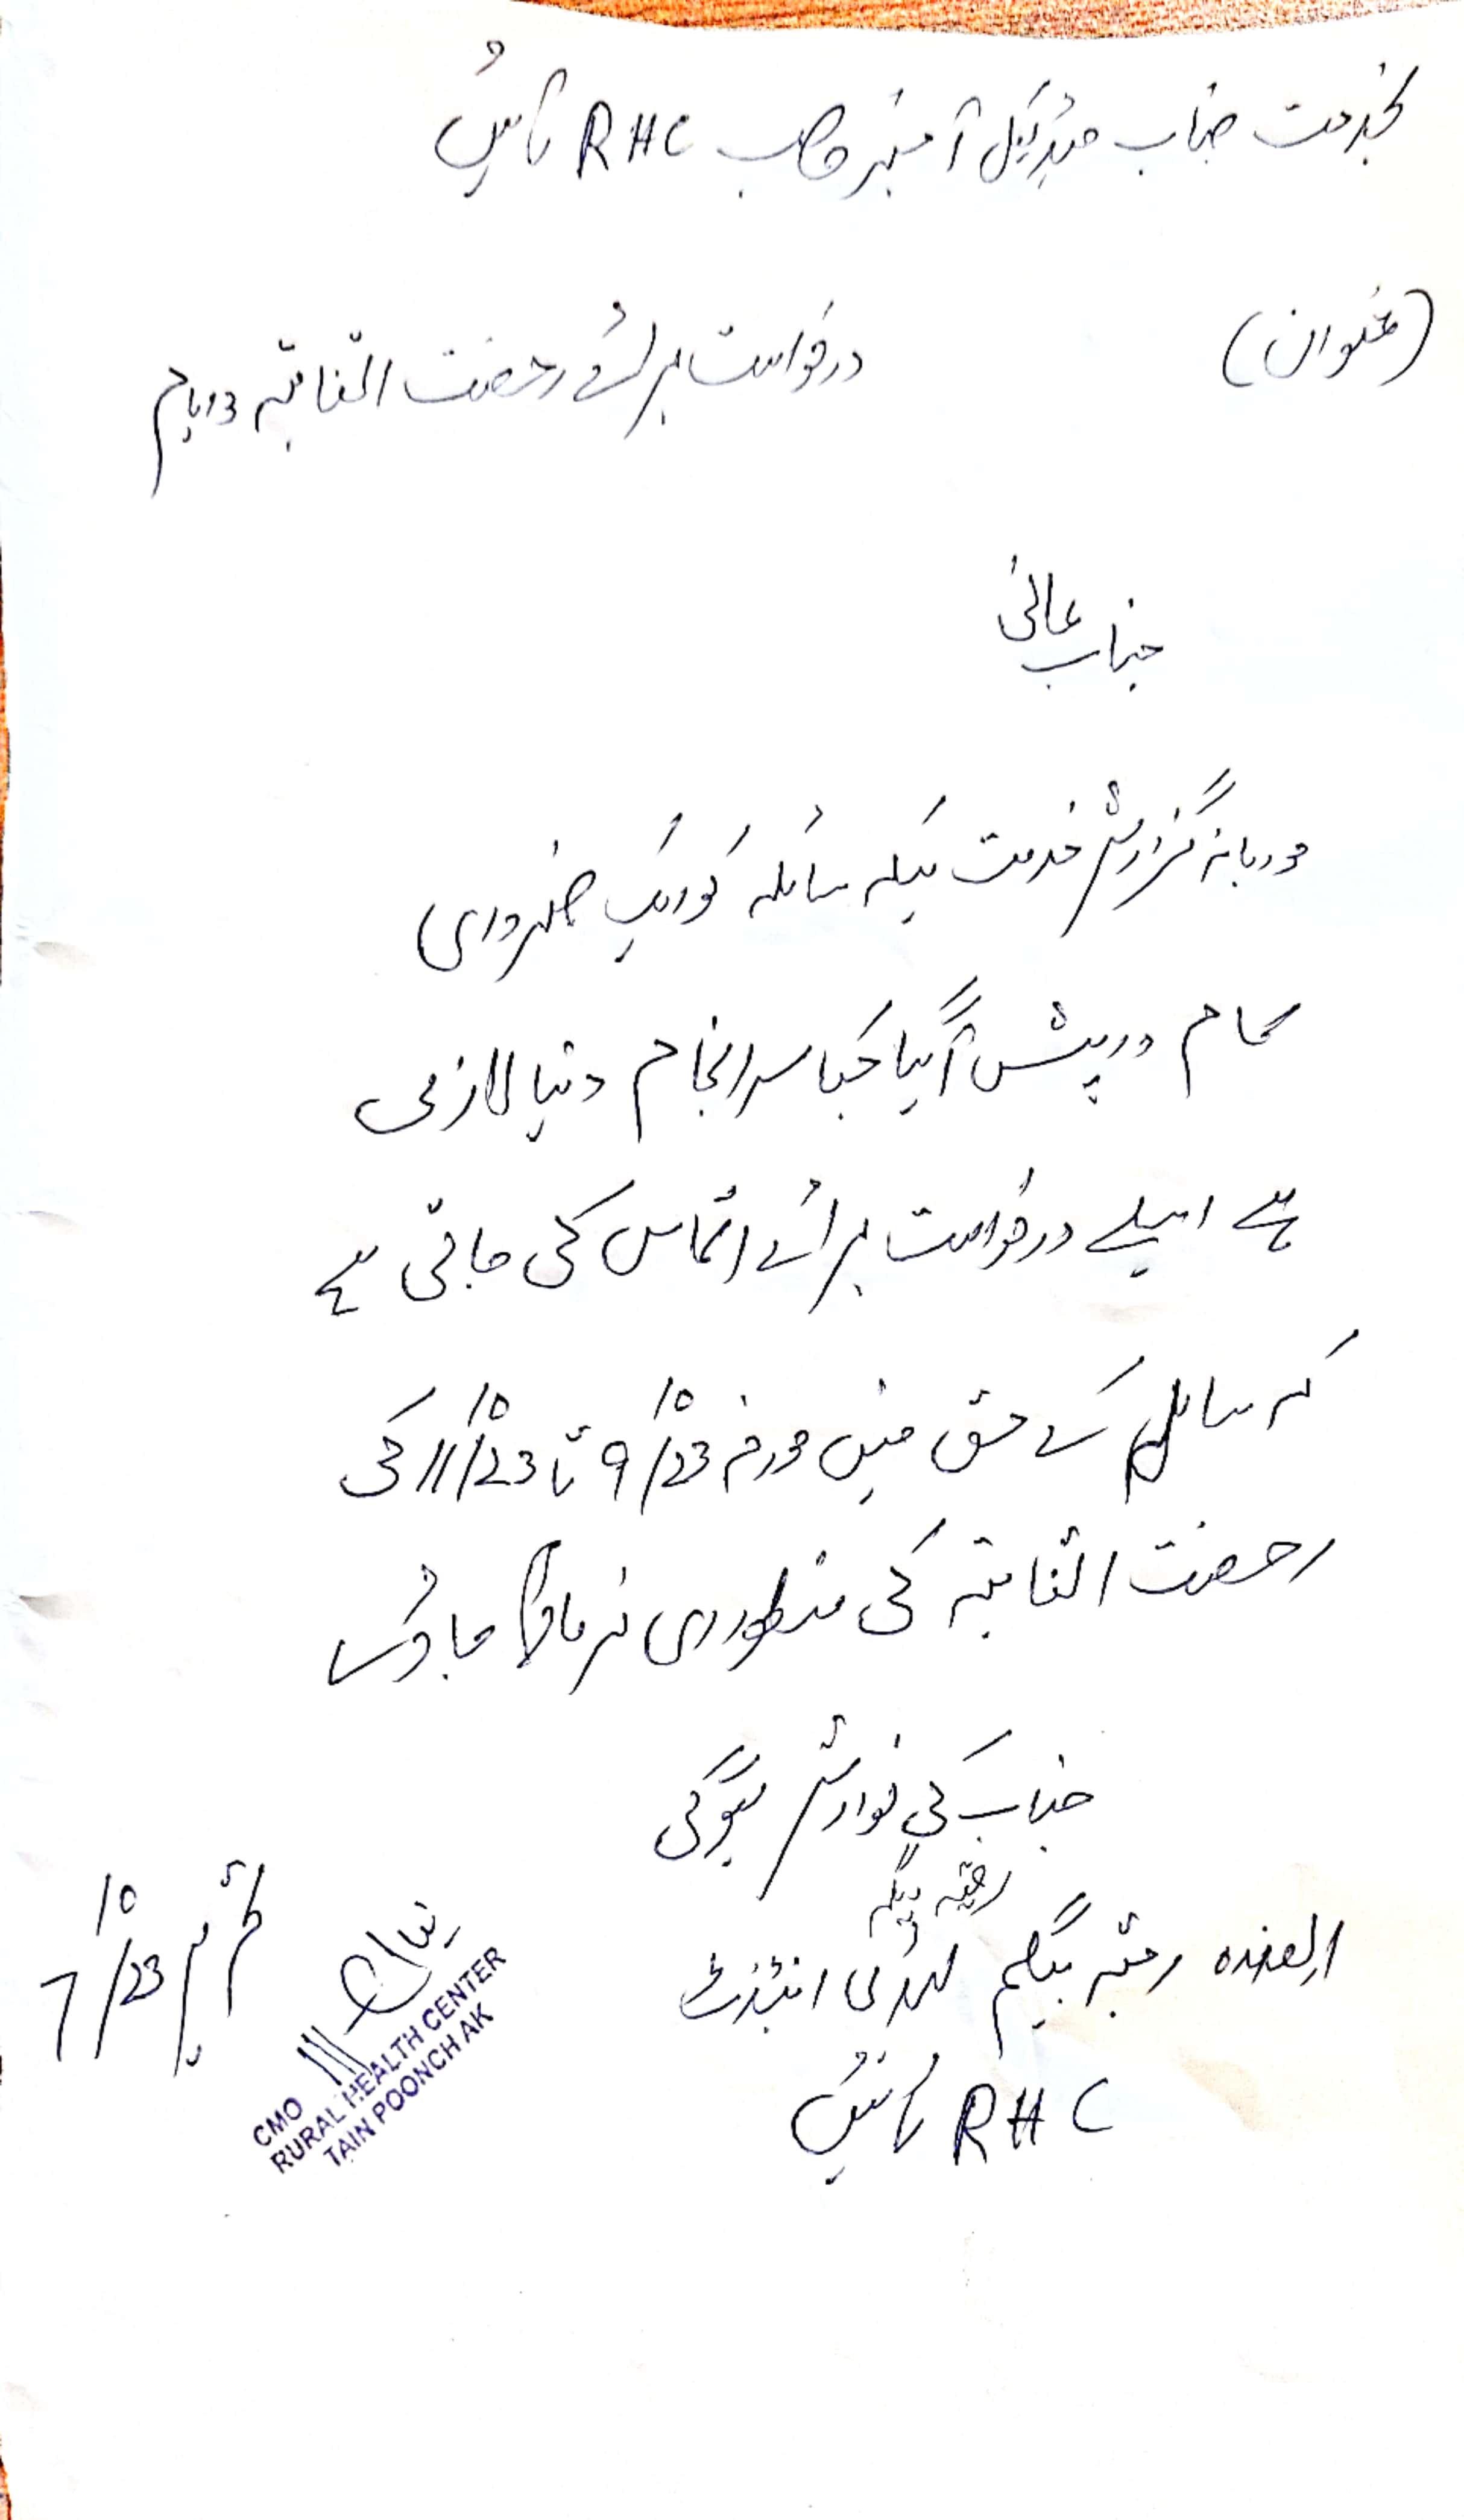 بخدمت جناب میڈیکل آفیسر صاحب RHC ٹائیں
(عنوان)
درخواست برائے رخصت اتفاقیہ 3 ایام
جناب عالی
مودبانہ گزارش خدمت ہیکہ سائلہ کو ایک ضروری
کام درپیش آگیا جسکا سرانجام دینا لازمی
ہے اسلیے درخواست برائے التماس کی جاتی ہے
کہ سائلہ کے حق میں مورخہ 9/10/23 تا 11/10/23 کی
رخصت اتفاقیہ کی منظوری فرمائی جاوئے
جناب کی نوازش ہوگی
رقیہ بیگم
العبدہ رقیہ بیگم انٹنڈنٹ
RHC ٹائیں
7/10/23
CMO
RURAL HEALTH CENTER
TAIN POONCH AK